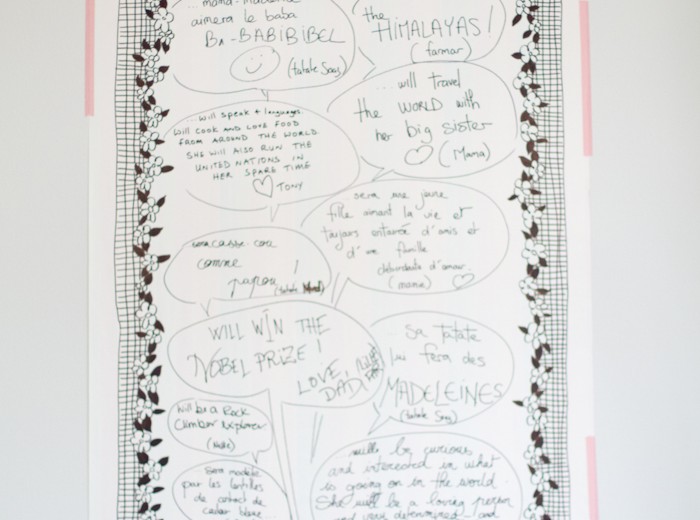 ... mama-
aimera le baba
BA-BABIBIBEL
(tatate Sony)
the
HIMALAYAS!
(farmar)
... will Travel
the WORLD with
her big sister
(Mama)
... will speak 4 languages.
Will COOK AND LOVE FOOD
FROM AROUND THE WORLD
SHE WILL ALSO RUN THE
UNITED NATIONS IN
HER SPARE TIME
TONY
sera une jeune
fille aimant la vie et
toujours entourée d'amis et
d'une famille
débordante d'amour.
(mamie)
sera casse-cou
comme
papou!
(tatate
WILL WIN THE
NOBEL PRIZE!
LOVE,
DAD
Sa tatate
lui fera des
MADELEINES
(tatate Sony)
Will be a Rock
Climber Explorer
Sera modèle
par les lentilles
de contact de
couleur blanc
will be curious
and interested in what
is going on in the world.
She will be a loving person
and very determined and